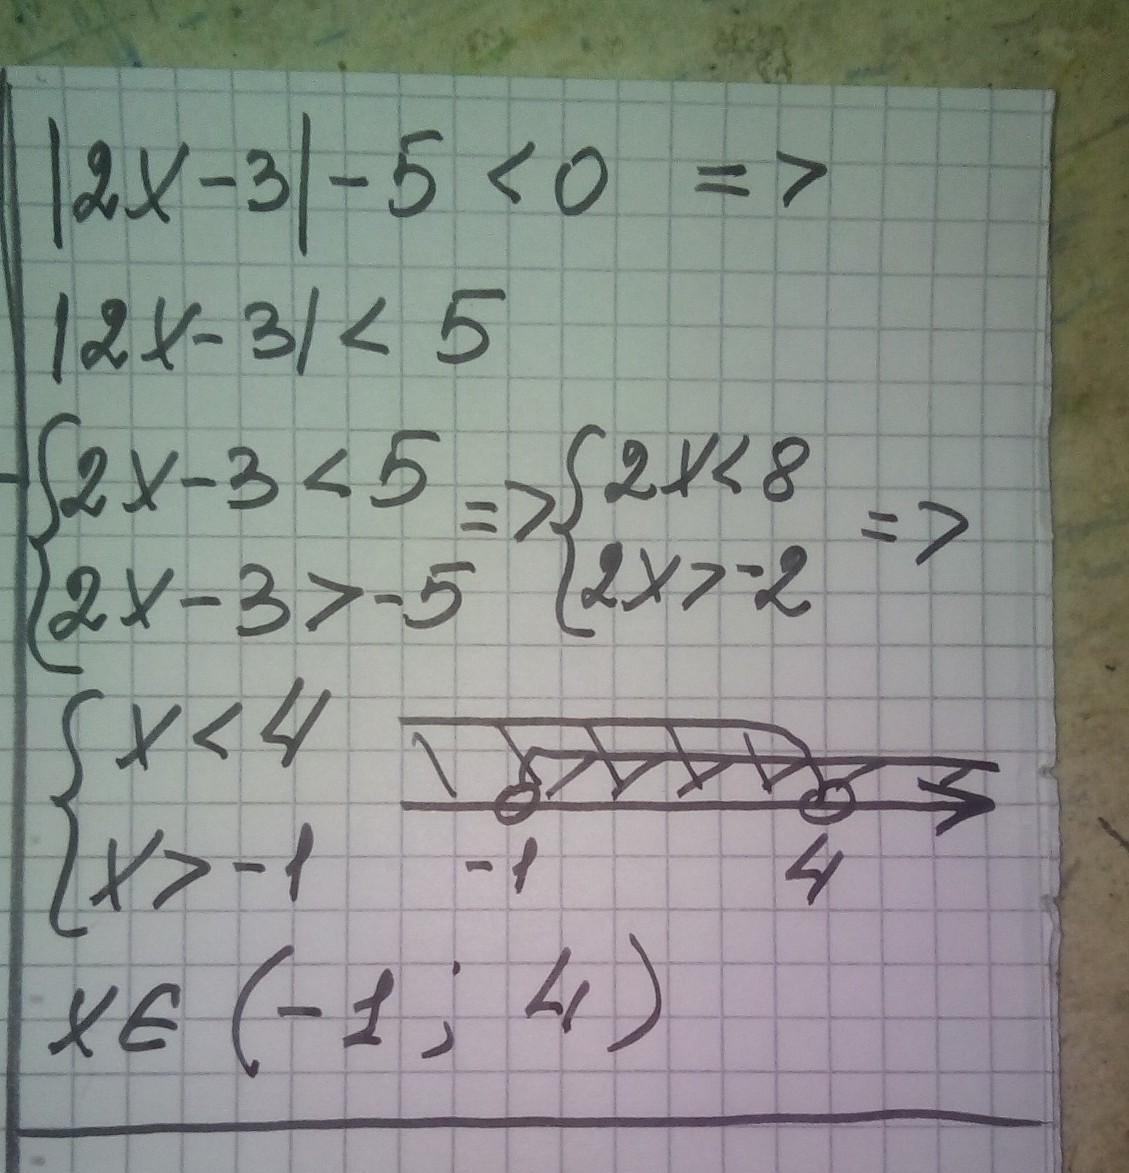 |2x-3|-5<0 =>
|2x-3|<5
{2x-3<5 => {2x<8 =>
{2x-3>-5 {2x>-2
{x<4
{x>-1 -1 4
x∈(-1; 4)